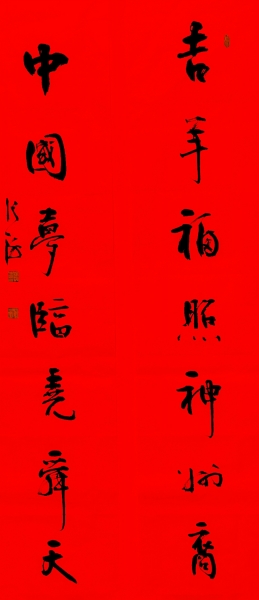 吉羊福照神州裔
中國夢臨堯舜天